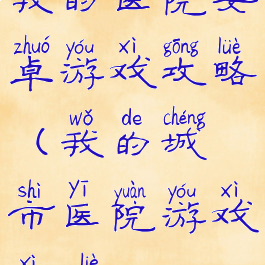 我的医院安
zhuó yóu xì gōng lüè
卓游戏攻略
wǒ de chéng
(我的城
shì yī yuàn yóu xì
市医院游戏
xì liè